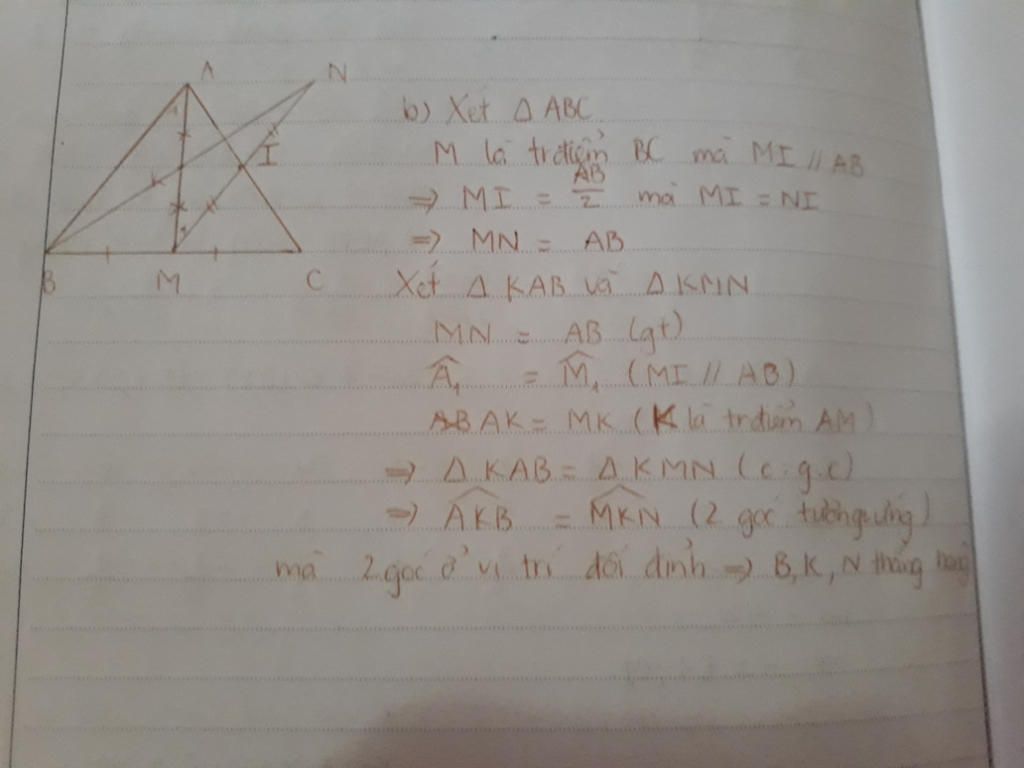 A N
I
B M C
b) Xét Δ ABC.
M là trđiểm BC mà MI // AB
⇒ MI = AB/2 mà MI = NI
⇒ MN = AB
Xét Δ KAB và Δ KMN
MN = AB (gt)
Â₁ = M̂₁ (MI // AB)
AK = MK (K là trđiểm AM)
⇒ Δ KAB = Δ KMN (c.g.c)
⇒ AKB = MKN (2 góc tương ứng)
mà 2 góc ở vị trí đối đỉnh ⇒ B, K, N thẳng hàng